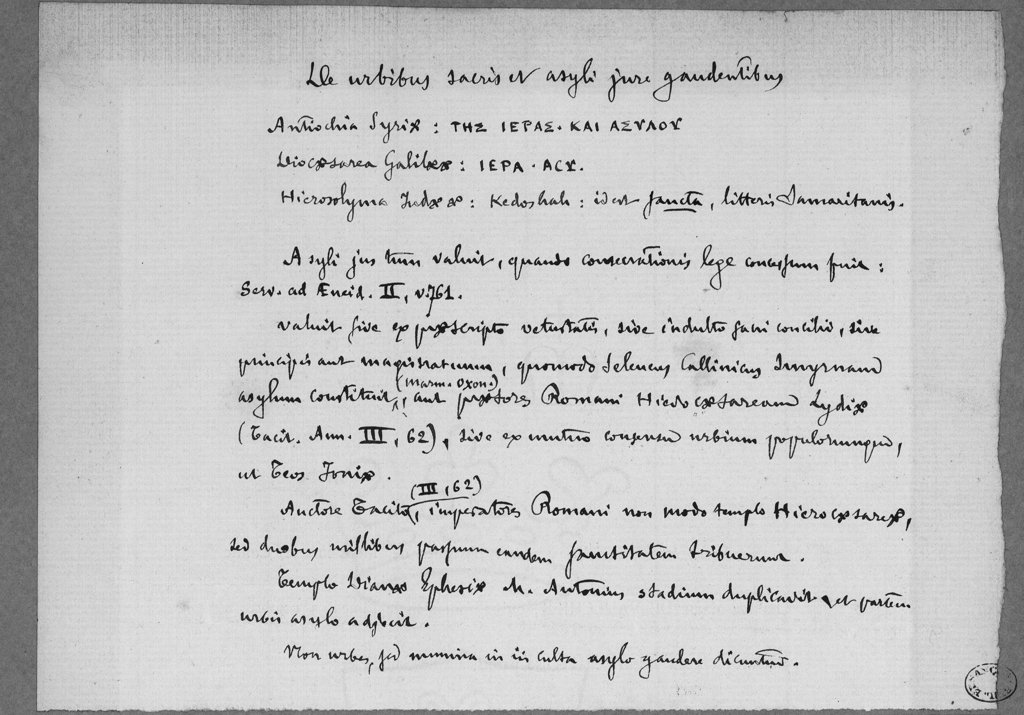 De urbibus sacris et asyli jure gaudentibus
Antiochia Syriæ : ΤΗΣ ΙΕΡΑΣ. ΚΑΙ ΑΣΥΛΟΥ
Diocæsarea Galilææ : ΙΕΡΑ . ΑСΥ.
Hierosolyma Judææ : Kedoshah : id est sancta, litteris Samaritanis.
Asyli jus tum valuit, quando consecrationis lege concessum fuit :
Serv. ad Æneid. II, v. 761.
valuit sive ex præscripto vetustatis, sive indulto sacri concilii, sive
principis aut magistratuum, quomodo Seleucus Callinicus Smyrnam
asylum constituit (marm. Oxon.), aut prætores Romani Hierocæsaream Lydiæ
(Tacit. Ann. III, 62), sive ex mutuo consensu urbium populorumque,
ut Teos Ioniæ.
Auctore Tacito (III, 62), imperatores Romani non modo templo Hierocæsareæ,
sed duobus millibus passuum eandem sanctitatem tribuerunt.
Templo Dianæ Ephesiæ M. Antonius stadium duplicavit, et partem
urbis asylo adjecit.
Non urbes, sed numina in iis culta asylo gaudere dicuntur.